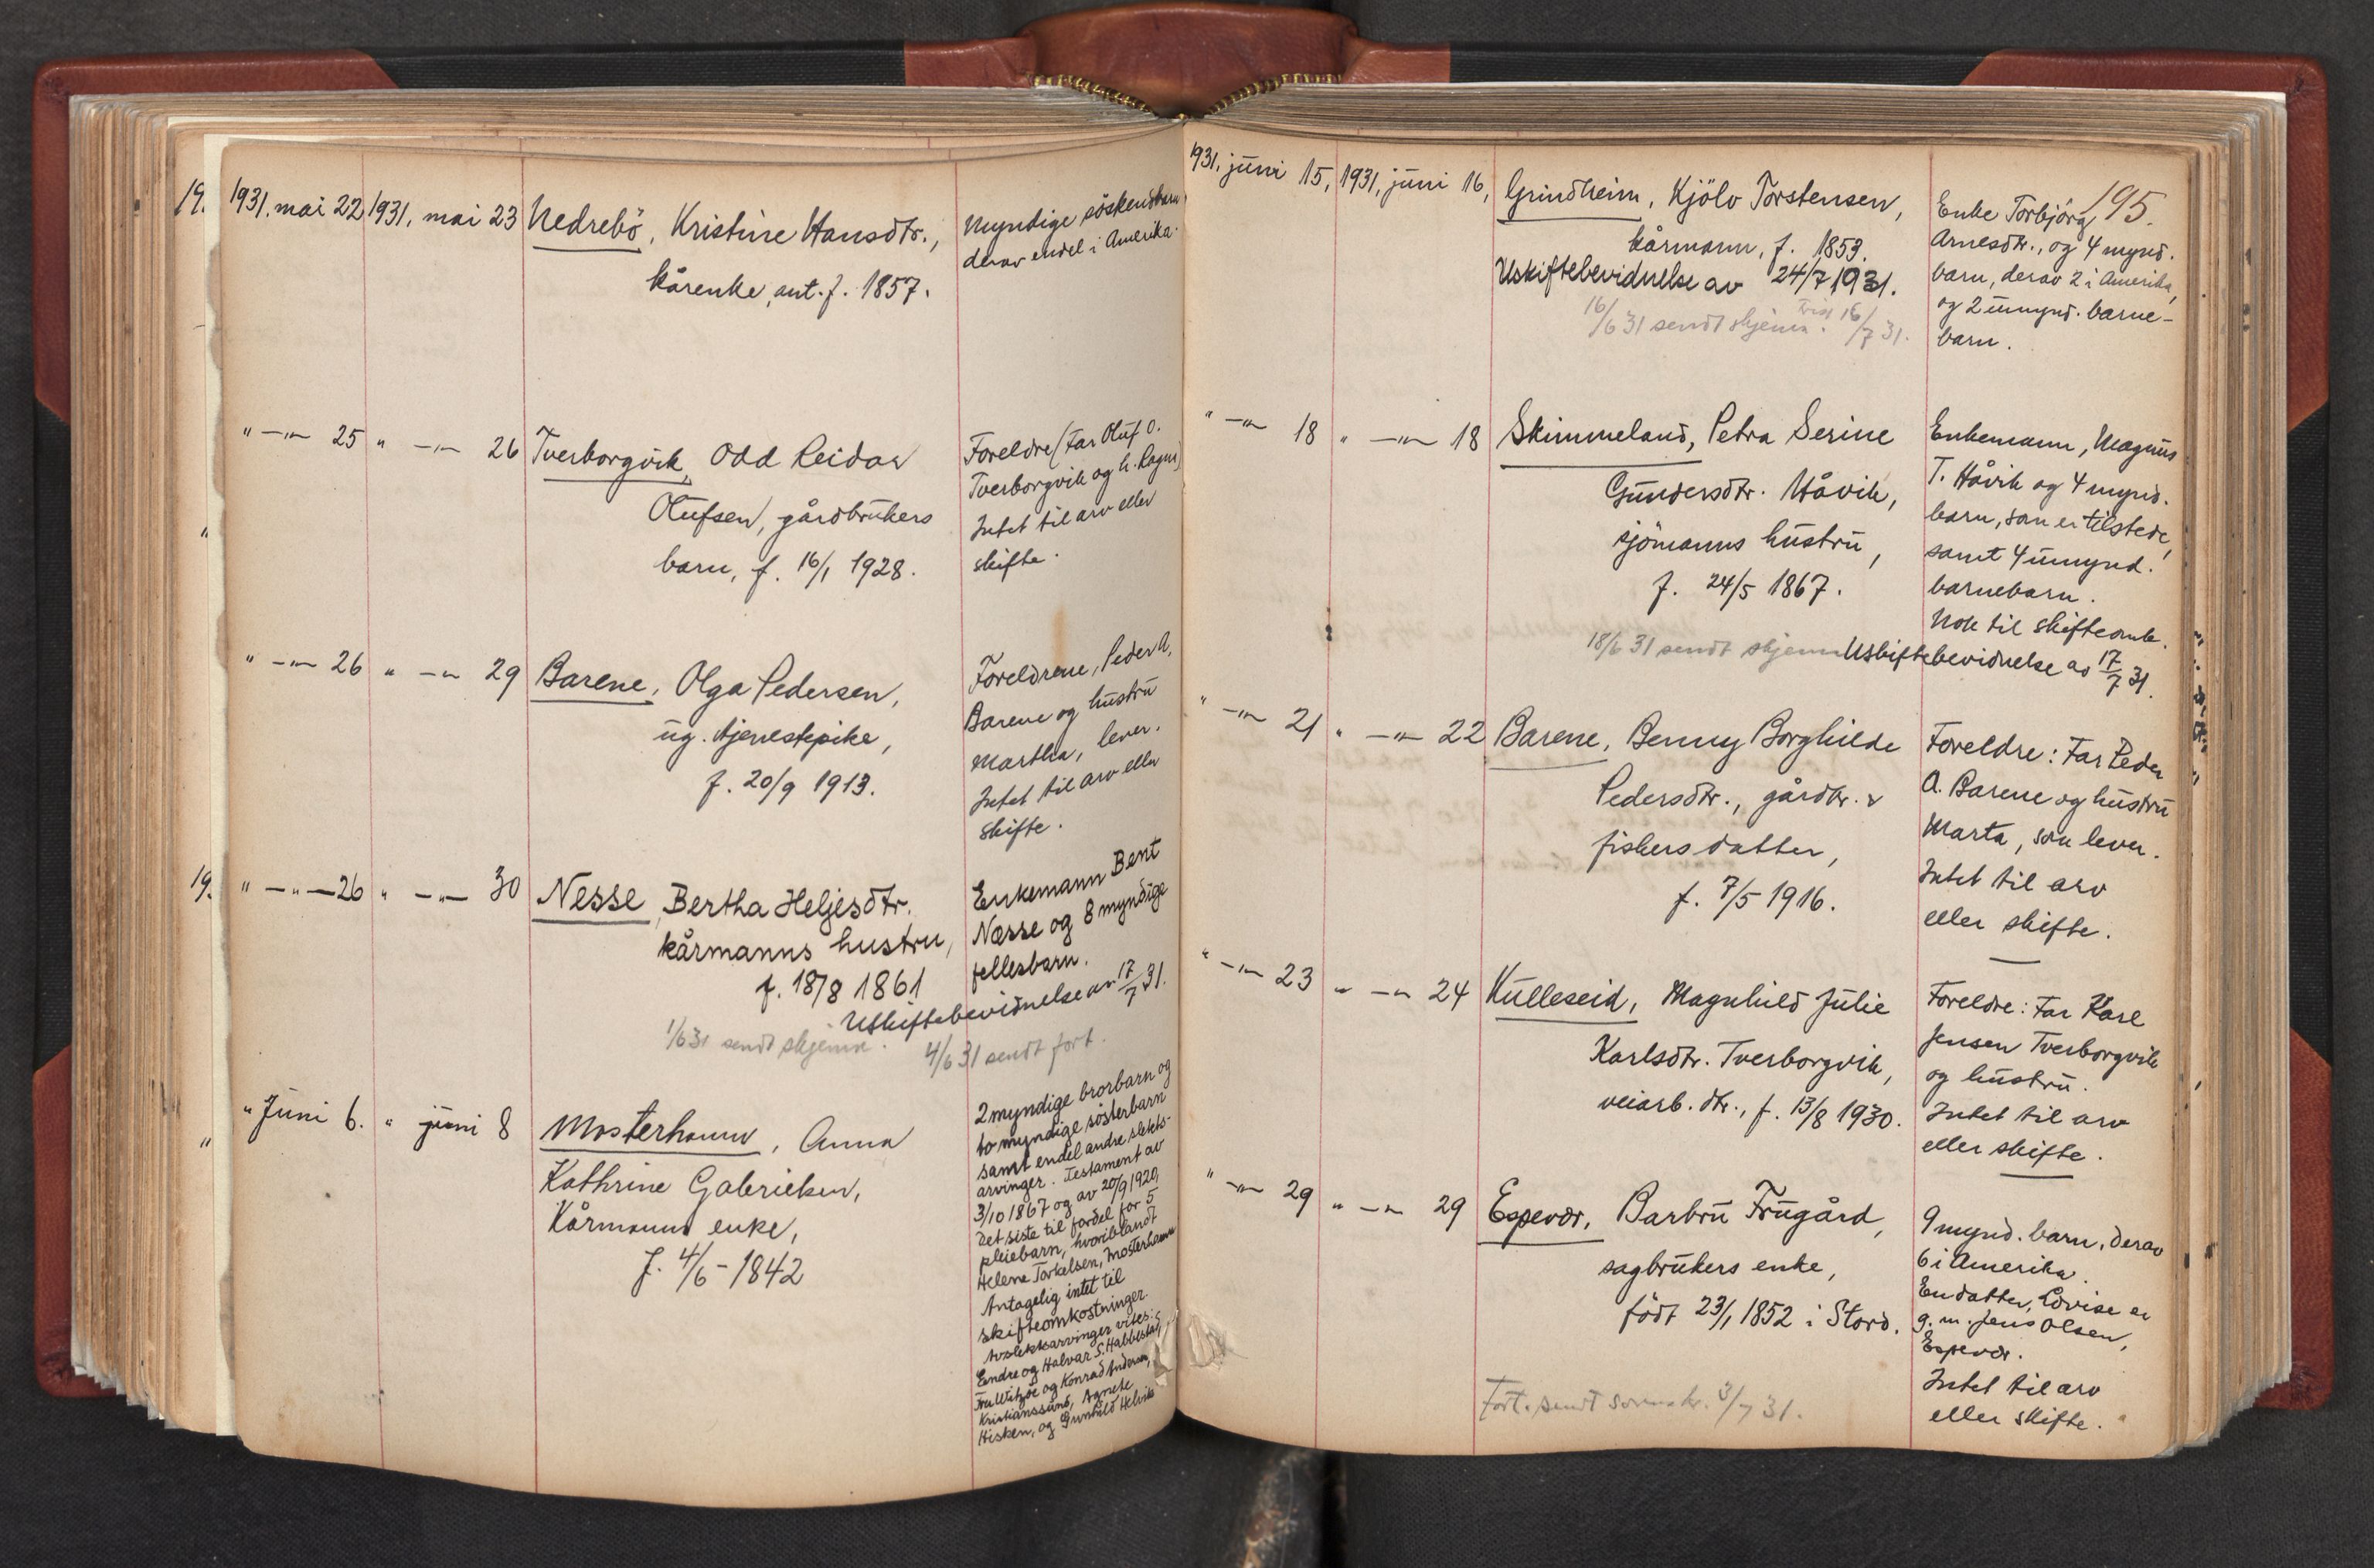 19.
1931. mai 22
1931. mai 23
Nedrebö, Kristine Hansdtr.,
kårenke, ant. f. 1857.
Myndige söskenbarn
derav endel i Amerika.
" —"— 25
" —"— 26
Tverborgvik, Odd Reidar
Olufsen, gårdbrukers
barn, f. 16/1 1928.
Foreldre (Far Oluf O.
Tverborgvik og h. Ragna)
Intet til arv eller
skifte.
" —"— 26
" —"— 29
Barene, Olga Pedersen,
ug. tjenestepike,
f. 20/9 1913.
Foreldrene, Peder A.
Barene og hustru
Martha, lever.
Intet til arv eller
skifte.
19.
" —"— 26
" —"— 30
Nesse, Bertha Heljesdtr.
kårmanns hustru,
f. 18/8 1861
Enkemann Bent
Næsse og 8 myndige
fellesbarn.
Uskiftebevidnelse av 17/7 31.
1/6 31 sendt skjema.
4/6 31 sendt fort.
"
" Juni 6.
" juni 8
Mosterhamn, Anna
Kathrine Gabrielsen,
Kårmanns enke,
f. 4/6 - 1842
2 myndige brorbarn og
to myndige sösterbarn
samt endel andre slekts-
arvinger. Testament av
3/10 1867 og av 20/9 1920,
det siste til fordel for 5
pleiebarn, hvoriblandt
Helene Torkelsen, Mosterhamn
Antagelig intet til
skifteomkostninger.
Av slektsarvinger vites:
Endre og Halvar S. Habbestad,
Fru Witzöe og Konrad Andersen,
Kristianssund, Agnete
Hisken, og Gunhild Helvik
195.
1931. juni 15,
1931, juni 16,
Grindheim, Kjölv Torstensen,
kårmann, f. 1853.
Uskiftebevidnelse av 24/7 1931.
16/6 31 sendt skjema. Frist 16/7 31.
Enke Torbjörg
Arnesdtr., og 4 mynd.
barn, derav 2 i Amerika,
og 2 umynd. barne-
barn.
" —"— 18
" —"— 18
Skimmeland, Petra Serine
Gundersdtr. Håvik,
sjömanns hustru,
f. 24/5 1867.
Enkemann, Magnus
T. Håvik og 4 mynd.
barn, som er tilstede,
samt 4 umynd.
barnebarn.
Nok til skifteomk.
18/6 31 sendt skjema Uskiftebevidnelse av 17/7 31.
" —"— 21
" —"— 22
Barene, Benny Borghilde
Pedersdtr., gårdbr. &
fiskers datter,
f. 7/5 1916.
Foreldre: Far Peder
A. Barene og hustru
Marta, som lever.
Intet til arv
eller skifte.
" —"— 23
" —"— 24
Kulleseid, Magnhild Julie
Karlsdtr. Tverborgvik,
veiarb. dtr., f. 13/8 1930.
Foreldre: Far Karl
Jensen Tverborgvik
og hustru.
Intet til arv
eller skifte.
" —"— 29
" —"— 29
Espevær, Barbru Frugård,
sagbrukers enke,
född 23/1 1852 i Stord.
9 mynd. barn, derav
6 i Amerika.
En datter, Lovise er
g. m. Jens Olsen,
Espevær.
Intet til arv
eller skifte.
Fort. sendt sorenskr. 3/7 31.